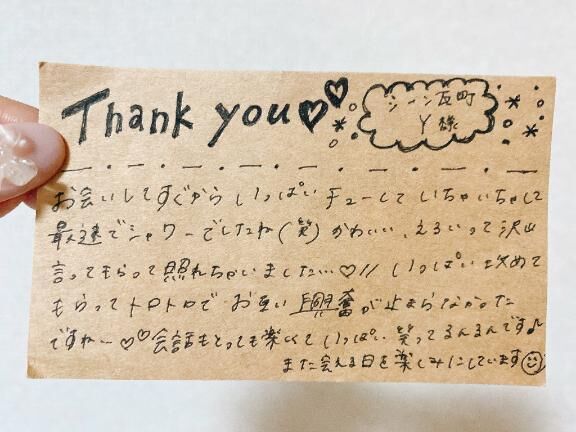 Thank you♡♡
シーン瓦町
Y様
お会いしてすぐからいっぱいチューしていちゃいちゃして
最速でシャワーでしたね(笑)かわいい、えろいって沢山
言ってもらって照れちゃいました…♡// いっぱい攻めて
もらってトロトロでお互い興奮が止まらなかった
ですね〜♡♡会話もとっても楽しくていっぱい笑ってるんるんです♪
また会える日を楽しみにしています☺